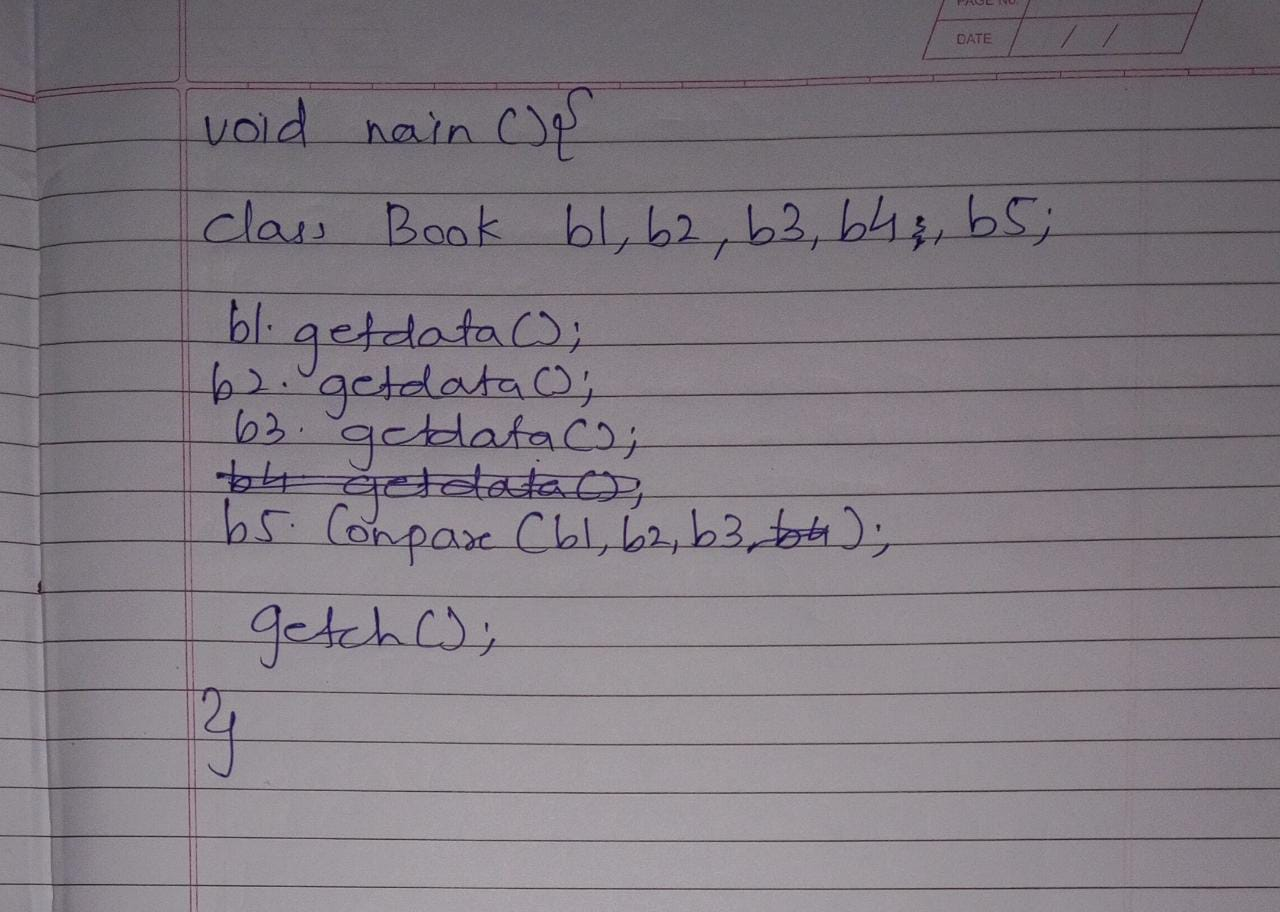 PAGE NO.
DATE / /
void nain (){
class Book b1, b2, b3, b4, b5;
b1. getdata();
b2. getdata();
b3. getdata();
b4 getdata();
b5. Conpare (b1, b2, b3, b4);
getch();
}